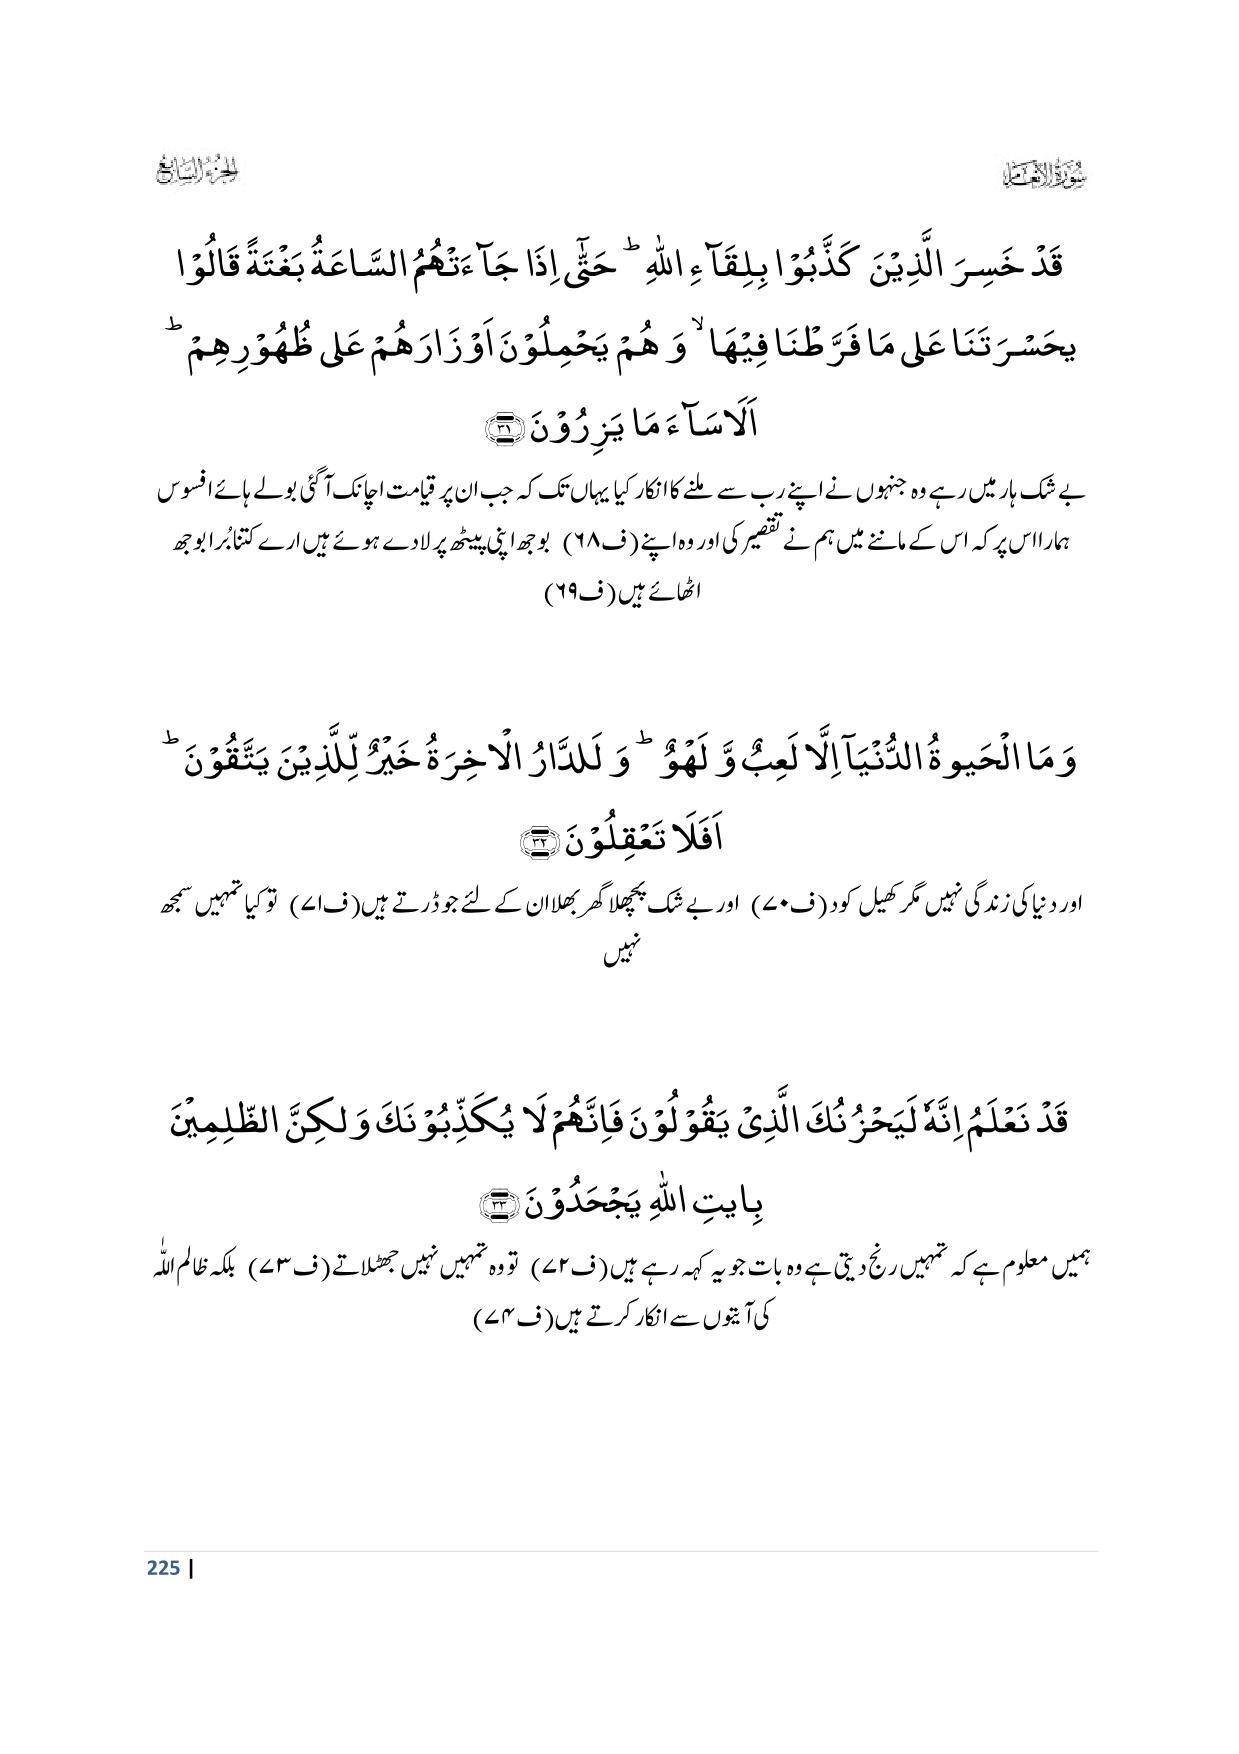 سُوْرَةُ الْاَنْعَام
الجزء السابع
قَدْ خَسِرَ الَّذِيْنَ كَذَّبُوْا بِلِقَآءِ اللّٰهِ ؕ حَتّٰۤى اِذَا جَآءَتْهُمُ السَّاعَةُ بَغْتَةً قَالُوْا
يحَسْرَتَنَا عَلٰى مَا فَرَّطْنَا فِيْهَا ۙ وَ هُمْ يَحْمِلُوْنَ اَوْزَارَهُمْ عَلٰى ظُهُوْرِهِمْ ؕ
اَلَا سَآءَ مَا يَزِرُوْنَ ﴿۳۱﴾
بے شک ہار میں رہے وہ جنہوں نے اپنے رب سے ملنے کا انکار کیا یہاں تک کہ جب ان پر قیامت اچانک آ گئی بولے ہائے افسوس
ہمارا اس پر کہ اس کے ماننے میں ہم نے تقصیر کی اور وہ اپنے (ف۶۸) بوجھ اپنی پیٹھ پر لادے ہوئے ہیں ارے کتنا بُرا بوجھ
اٹھائے ہیں (ف۶۹)
وَ مَا الْحَيوةُ الدُّنْيَاۤ اِلَّا لَعِبٌ وَّ لَهْوٌ ؕ وَ لَلدَّارُ الْاخِرَةُ خَيْرٌ لِّلَّذِيْنَ يَتَّقُوْنَ ؕ
اَفَلَا تَعْقِلُوْنَ ﴿۳۲﴾
اور دنیا کی زندگی نہیں مگر کھیل کود (ف۷۰) اور بے شک پچھلا گھر بھلا ان کے لئے جو ڈرتے ہیں (ف۷۱) تو کیا تمہیں سمجھ
نہیں
قَدْ نَعْلَمُ اِنَّهٗ لَيَحْزُنُكَ الَّذِىْ يَقُوْلُوْنَ فَاِنَّهُمْ لَا يُكَذِّبُوْنَكَ وَ لكِنَّ الظّلِمِيْنَ
بِايتِ اللّٰهِ يَجْحَدُوْنَ ﴿۳۳﴾
ہمیں معلوم ہے کہ تمہیں رنج دیتی ہے وہ بات جو یہ کہہ رہے ہیں (ف۷۲) تو وہ تمہیں نہیں جھٹلاتے (ف۷۳) بلکہ ظالم اللّٰہ
کی آیتوں سے انکار کرتے ہیں (ف۷۴)
225 |